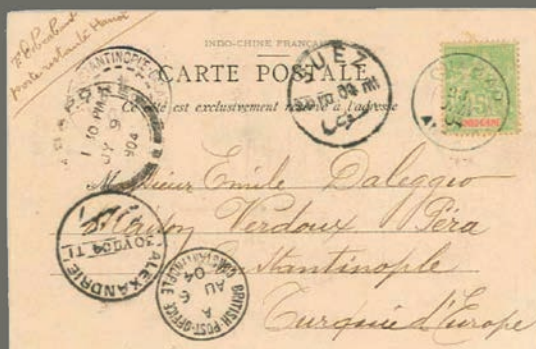 poste restante Hanoi
INDO-CHINE FRANÇAISE
CARTE POSTALE
Ce côté est exclusivement réservé à l'adresse
SUEZ
CONSTANTINOPLE
JY 9
904
INDOCHINE
Monsieur Emile Daleggio
Maison Verdoux Péra
Constantinople
Turquie d'Europe
ALEXANDRIE
BRITISH-POST-OFFICE CONSTANTINOPLE
A
AU 6
04